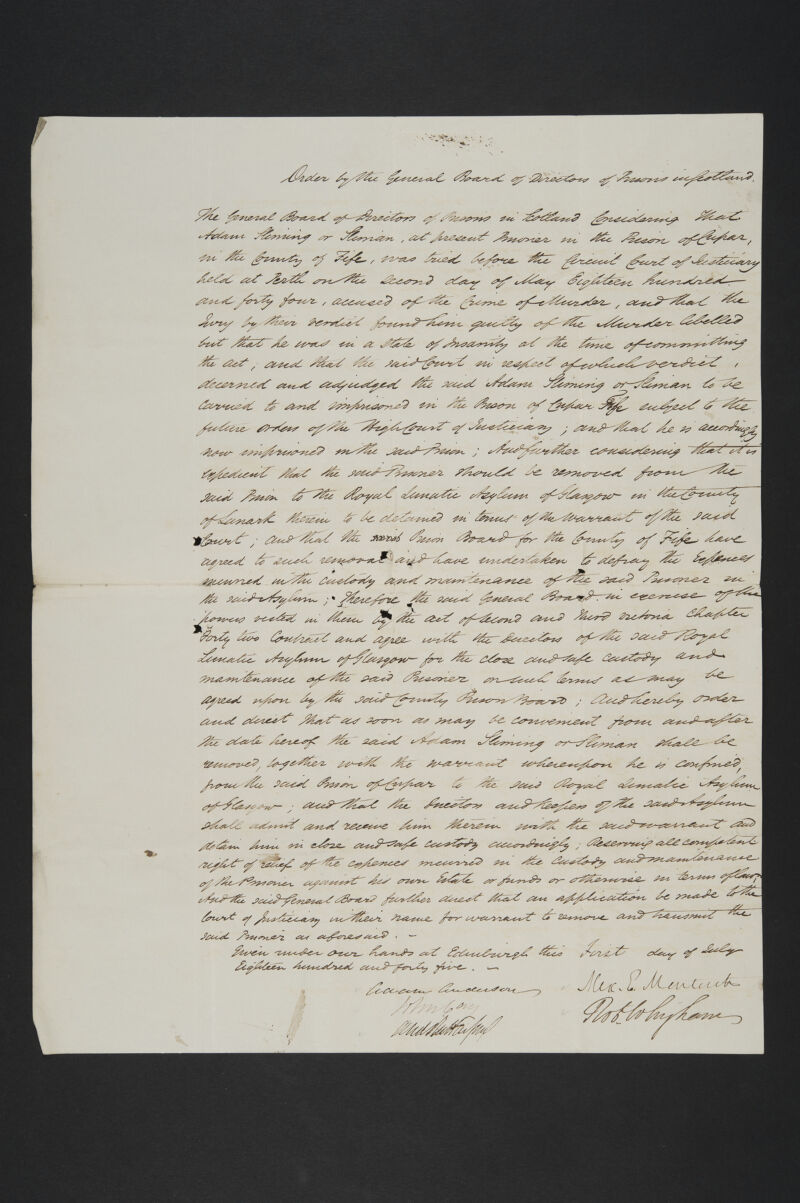 Order by the General Board of Directors of Prisons in Scotland.
The General Board of Directors of Prisons in Scotland Considering that
Adam Sliming or Sliman, at present Prisoner in the Prison of Cupar,
in the County of Fife, was tried before the Circuit Court of Justiciary
held at Perth on the Second day of May Eighteen hundred
and forty four, accused of the Crime of Murder, and that the
Jury by their verdict found him guilty of the Murder libelled
but that he was in a state of Insanity at the time of committing
the act, and that the said Court in respect of which verdict,
decerned and adjudged the said Adam Sliming or Sliman to be
carried to and imprisoned in the Prison of Cupar Fife subject to the
future orders of the High Court of Justiciary; and that he is accordingly
now imprisoned in the said Prison; And further considering that it is
expedient that the said Prisoner should be removed from the
said Prison to the Royal Lunatic Asylum of Glasgow in the County
of Lanark therein to be detained in terms of the Warrant of the said
Court; and that the Prison Board for the County of Fife have
agreed to such removal and have undertaken to defray the Expences
incurred in the custody and maintenance of the said Prisoner in
the said Asylum; Therefore the said General Board in exercise of the
powers vested in them by the act of Second and Third Victoria Chapter
Forty two Contract and agree with the Directors of the said Royal
Lunatic Asylum of Glasgow for the close and safe custody and
maintenance of the said Prisoner on such terms as may be
agreed upon by the said County Prison Board; And hereby order
and direct that as soon as may be convenient from and after
the date hereof the said Adam Sliming or Sliman shall be
removed, together with the warrant whereupon he is confined,
from the said Prison of Cupar to the said Royal Lunatic Asylum
of Glasgow; and that the Directors and Keepers of the said Asylum
shall admit and receive him therein with the said warrant and
detain him in close and safe custody accordingly; Reserving all competent
right of relief of the expences incurred in the custody and maintenance
of the Prisoner against his own Estate or funds or otherwise in terms of law.
And the said General Board further direct that an application be made to the
Court of Justiciary in their name for warrant to remove and transmit the
said Prisoner as aforesaid. –
Given under our hands at Edinburgh this First day of July
Eighteen hundred and forty five. –
Adam Anderson
Alex. E. Monteith
Rob. Whigham